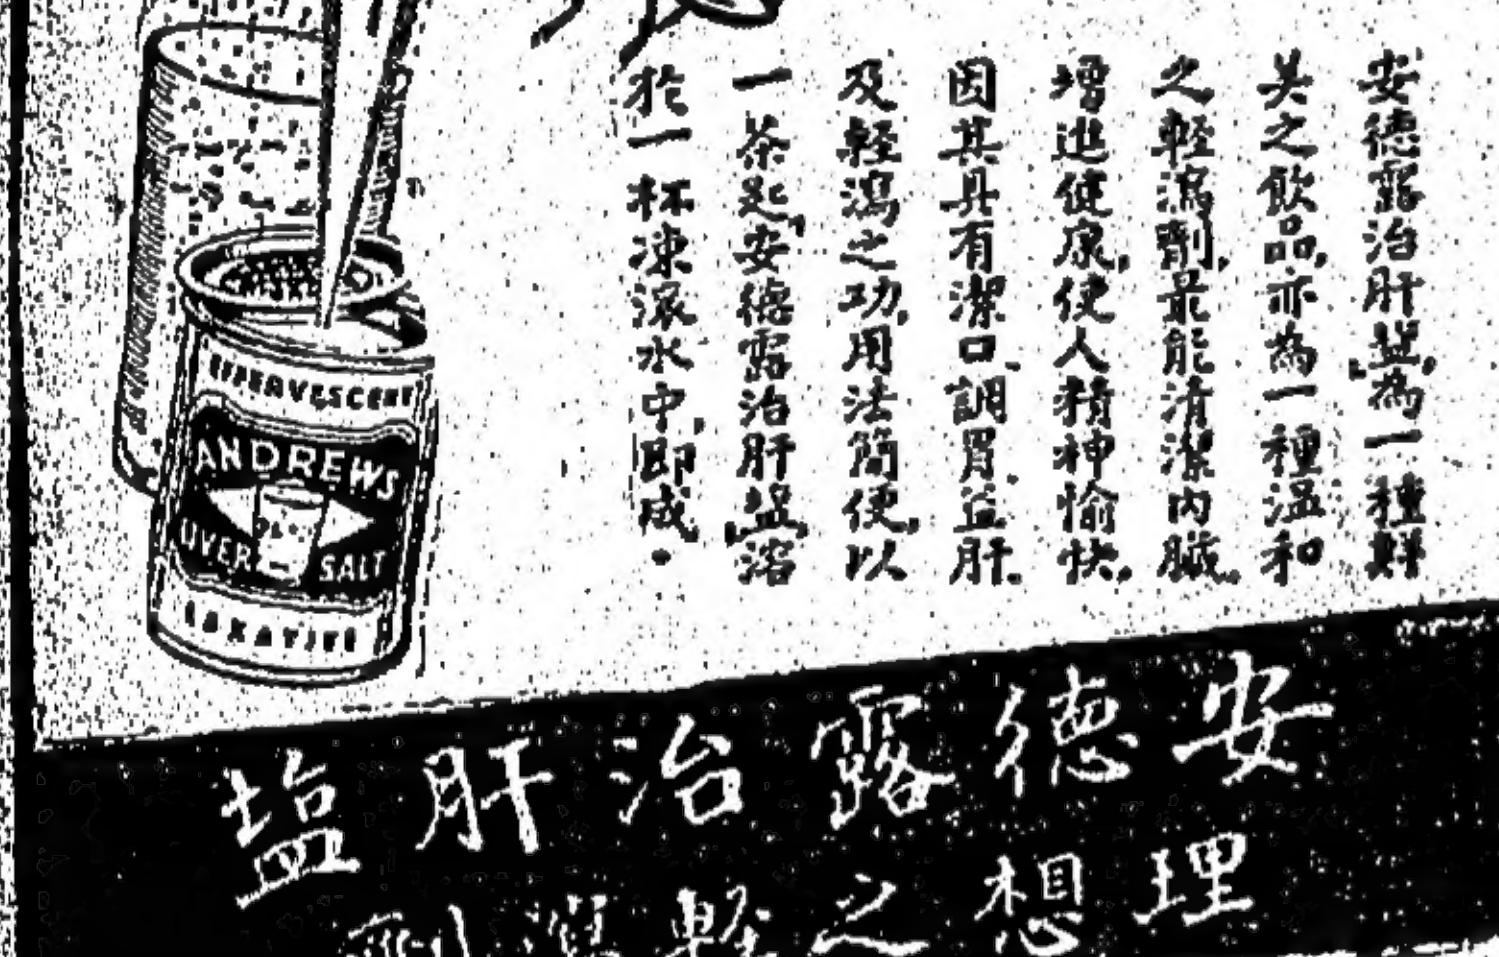 安德露治肝盐,為一種鮮
美之飲品,亦為一種溫和
之輕瀉劑,最能清潔內臟,
增進健康,使人精神愉快,
因其具有潔口、調胃、益肝、
及輕瀉之功,用法簡便,以
一茶匙,安德露治肝盐,溶
於一杯凍滾水中,即成。
EFFERVESCENT
ANDREWS
LIVER SALT
LAXATIVE
安德露治肝塩
理想之輕瀉劑